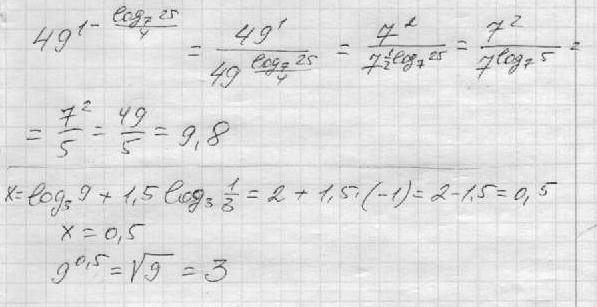 49^{1 - \frac{log_7 25}{4}} = \frac{49^1}{49^{\frac{log_7 25}{4}}} = \frac{7^2}{7^{\frac{1}{2} log_7 25}} = \frac{7^2}{7^{log_7 5}} =
= \frac{7^2}{5} = \frac{49}{5} = 9,8
x = log_3 9 + 1,5 log_3 \frac{1}{3} = 2 + 1,5 · (-1) = 2 - 1,5 = 0,5
x = 0,5
9^{0,5} = √9 = 3